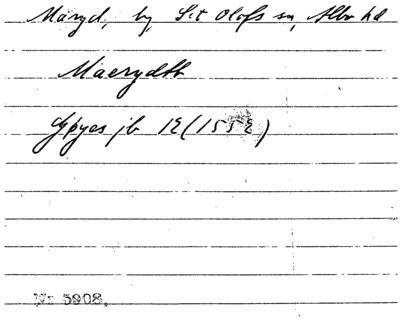 Maryd, by, S:t Olofs sn, Albo hd
Maerydth
Gyyes jb 12 (1552)
Nr 5908.